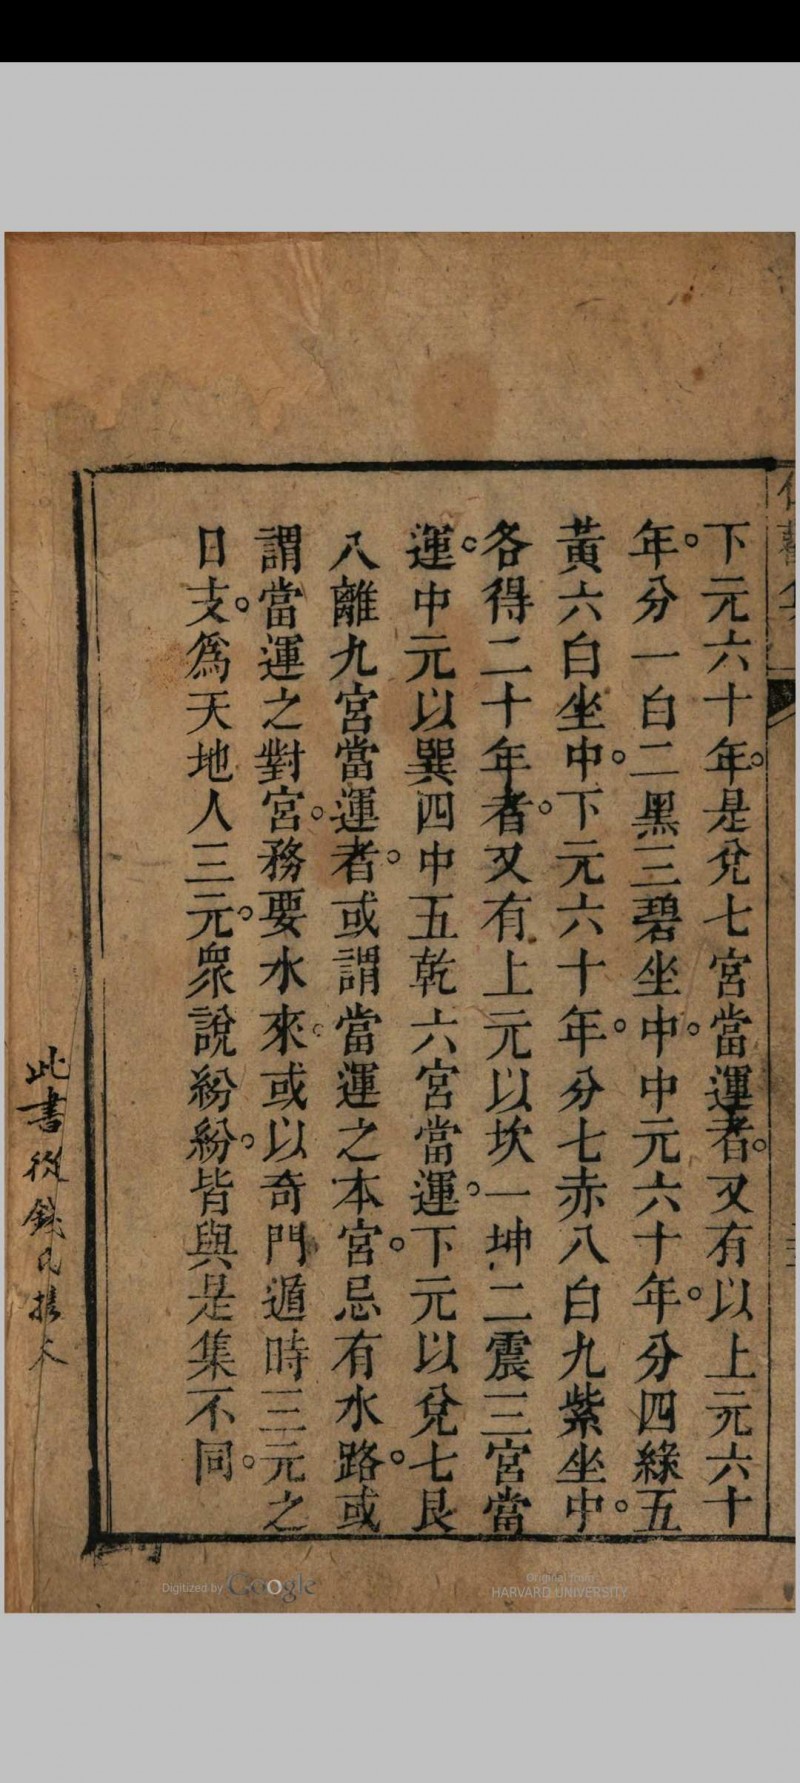 下元六十年。是兌七宮當運者。又有以上元六十
年。分一白二黑三碧坐中。中元六十年。分四綠五
黃六白坐中。下元六十年。分七赤八白九紫坐中。
各得二十年者。又有上元以坎一坤二震三宮當
運。中元以巽四中五乾六宮當運。下元以兌七艮
八離九宮當運者。或謂當運之本宮。忌有水路。或
謂當運之對宮。務要水來。或以奇門遁時三元之
日支。為天地人三元。眾說紛紛。皆與是集不同。
此書從錢氏
Digitized by Google
Original from
HARVARD UNIVERSITY